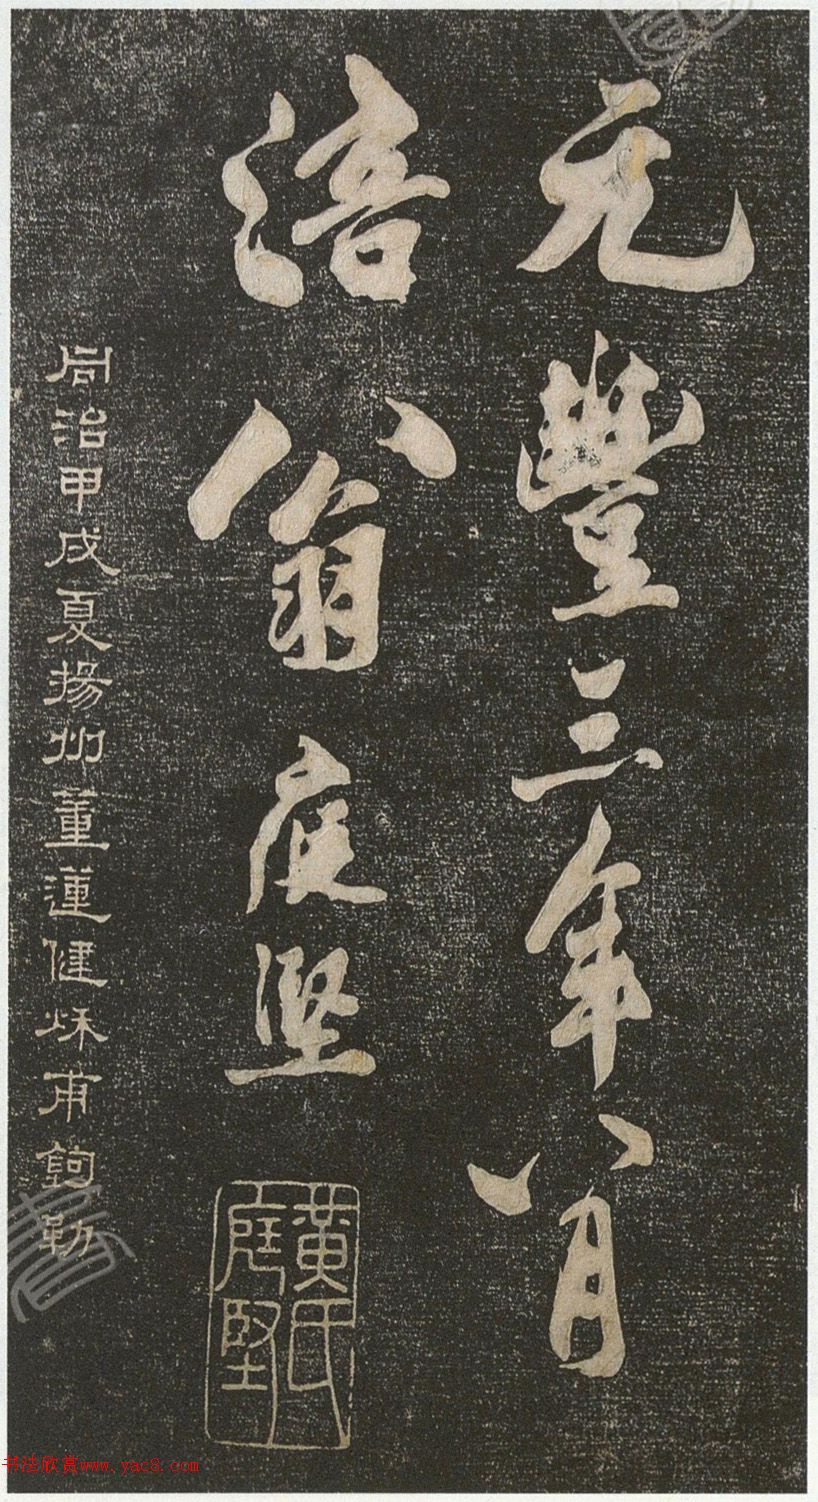 元豐三年八月
涪翁庭堅
黃氏庭堅
同治甲戌夏揚州董蓮健殏甫鉤勒
书法欣赏www.yac8.com